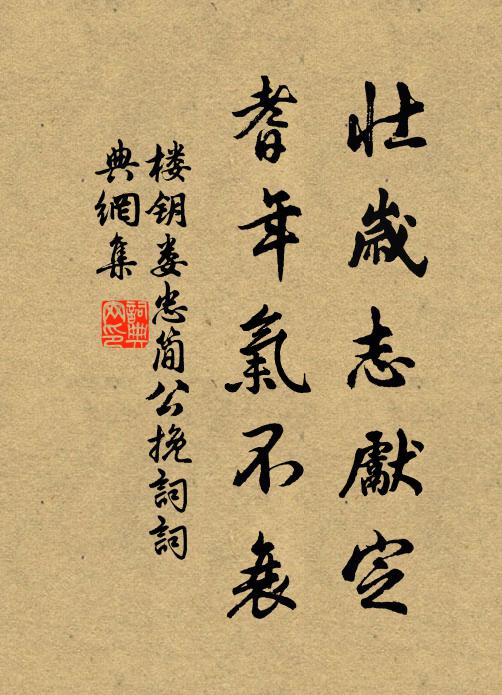 壯歲志獻定
耆年氣不衰
楼钥娄忠简公挽詞詞
典網集
詞典
网印